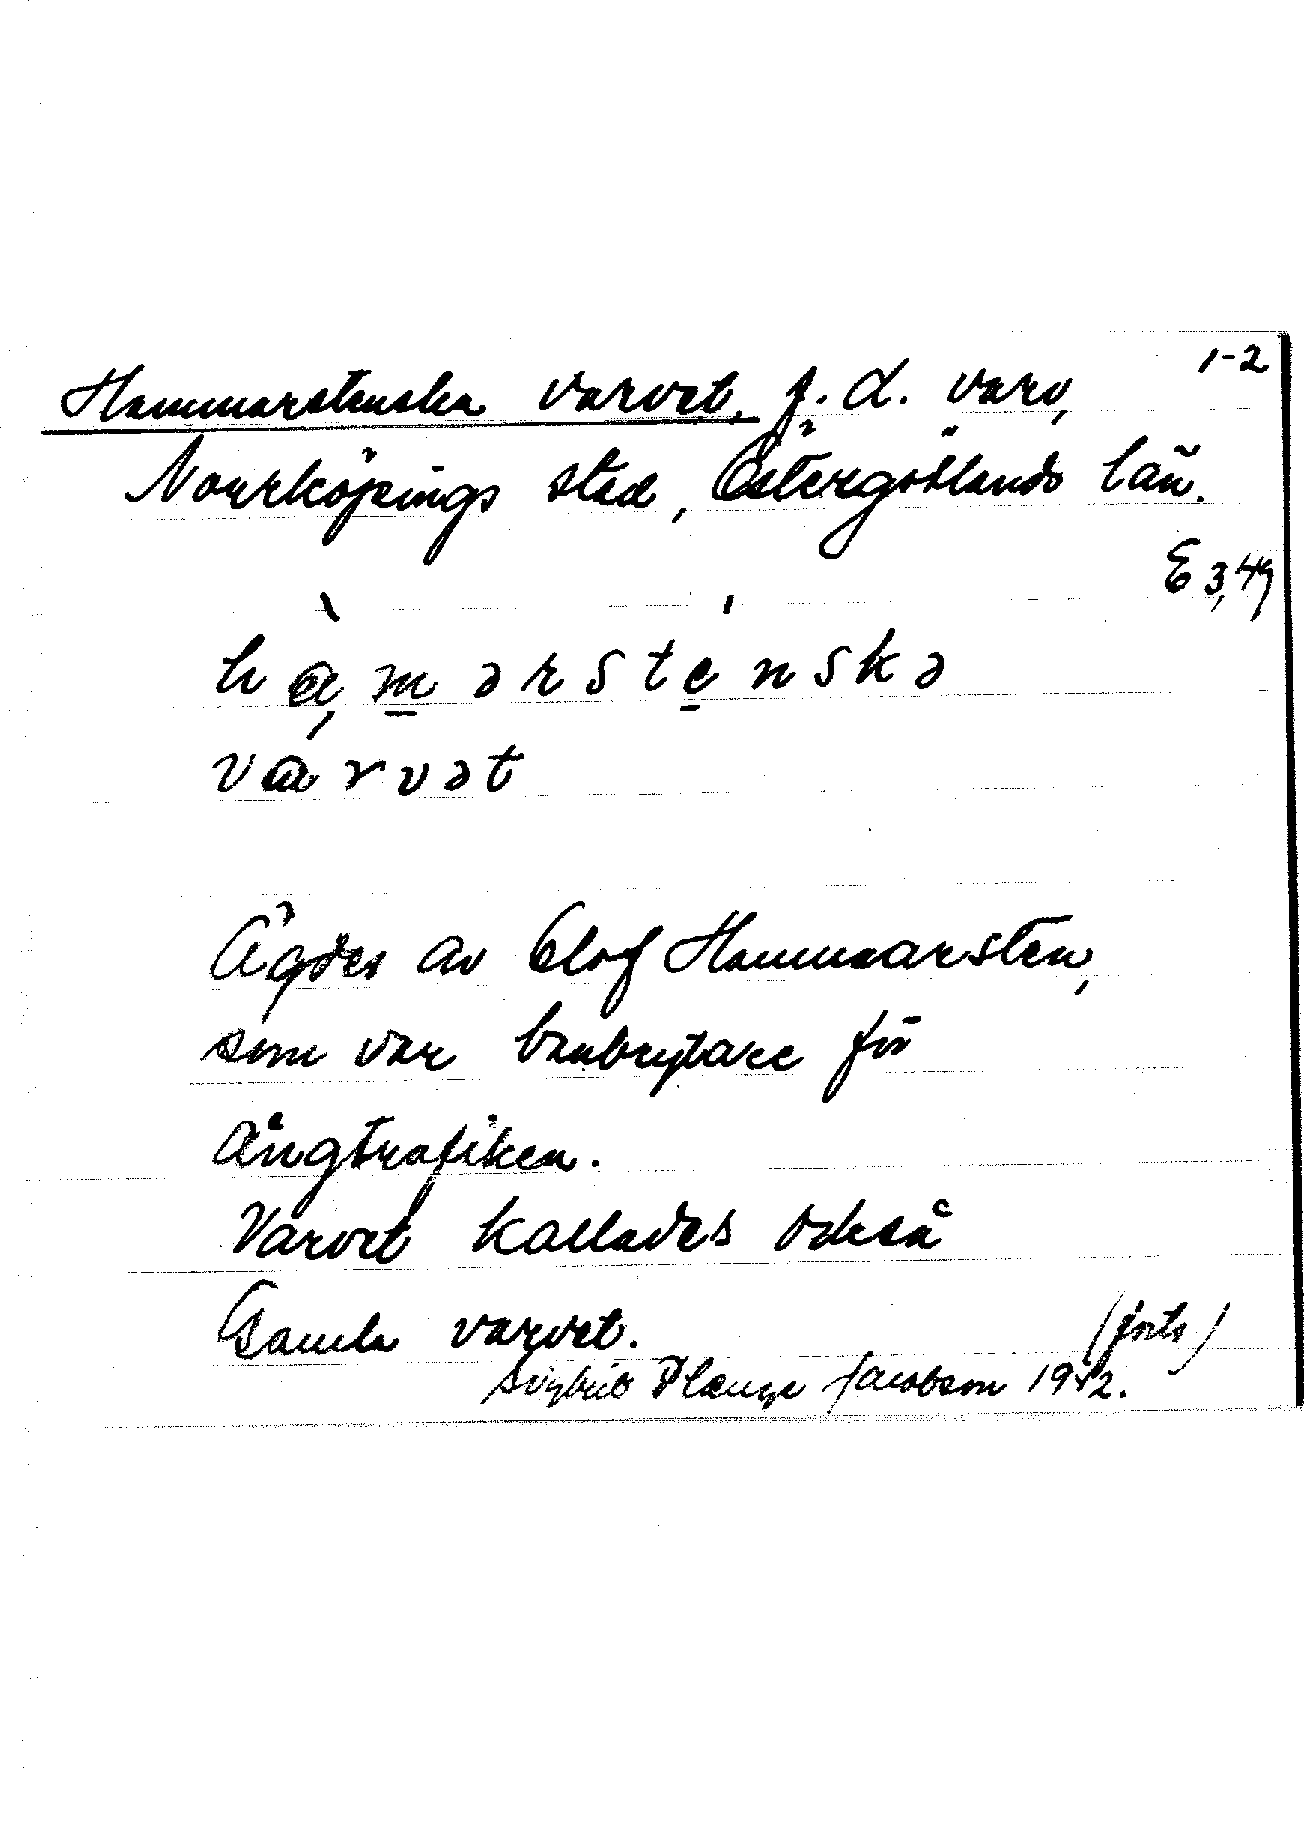 1-2
Hammarstenska varvet, f.d. varv,
Norrköpings stad, Östergötlands län.
E 3,49
hàmərsténskə
várvət
Ägdes av Olof Hammarsten,
som var banbrytare för
ångtrafiken.
Varvet kallades också
Gamla varvet.
(forts)
Sigbrit Plænge Jacobson 1942.